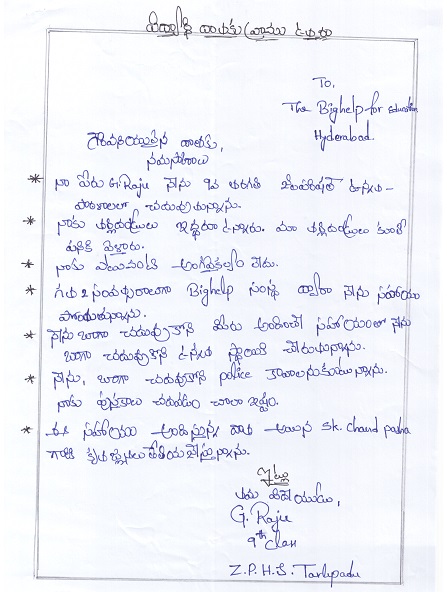 విద్యార్థి దాతకు వ్రాయు ఉత్తరం
To,
The Bighelp for Education
Hyderabad
గౌరవనీయులైన దాతకు,
నమస్కారాలు
* నా పేరు G. Raju నేను 9వ తరగతి జిల్లాపరిషత్ ఉన్నత-
పాఠశాలలో చదువుతున్నాను.
* నాకు తల్లిదండ్రులు ఇద్దరూ ఉన్నారు. మా తల్లిదండ్రులు కూలి
పనికి వెళ్తారు.
* నాకు ఎటువంటి అంగవైకల్యం లేదు.
* గత 2 సంవత్సరాలుగా Bighelp సంస్థ ద్వారా నేను సహాయం
పొందుతున్నాను.
* నేను బాగా చదువుకొని మీరు అందించే సహాయంతో నేను
బాగా చదువుకొని ఉన్నత స్థాయికి చేరుతున్నాను.
* నేను, బాగా చదువుకొని police కావాలనుకుంటున్నాను.
నాకు పుస్తకాలు చదవడం చాలా ఇష్టం.
* ఈ సహాయం అందిస్తున్న దాత అయిన Sk. chand pasha
గారికి కృతజ్ఞతలు తెలియజేస్తున్నాను.
ఇట్లు
తమ విధేయుడు,
G. Raju
9th class
Z.P.H.S. Tarlupadu